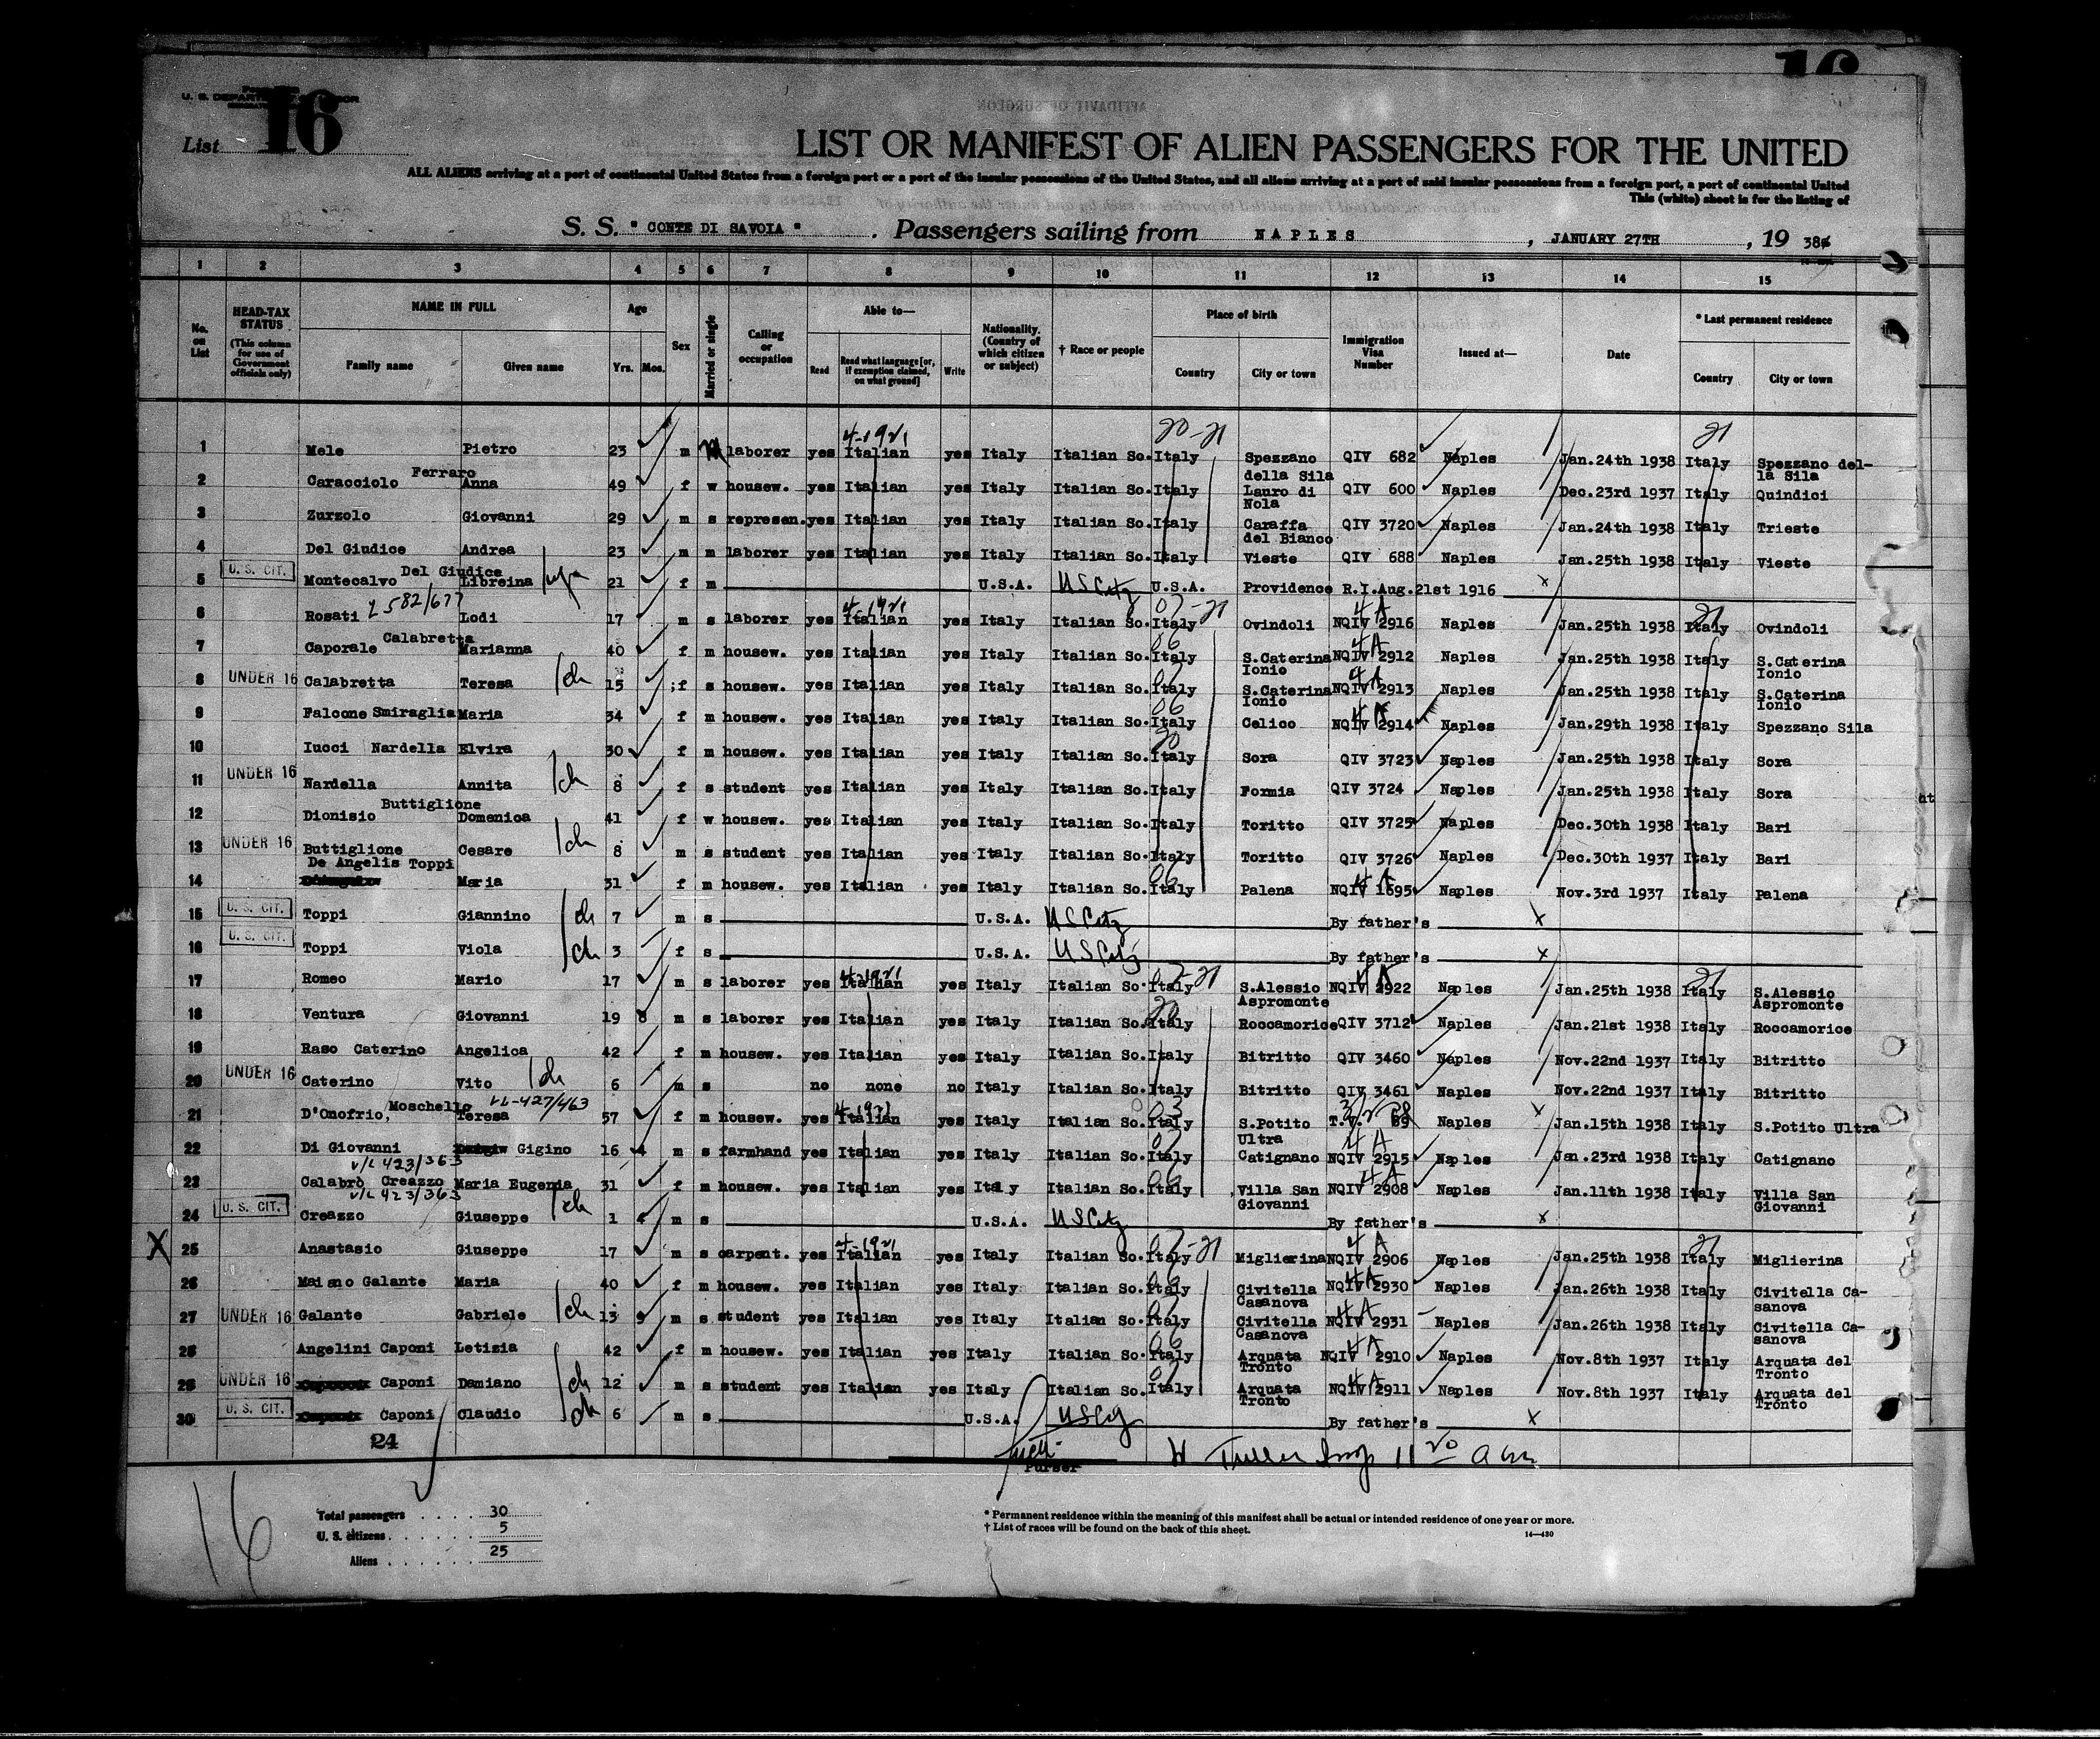 16
U. S. DEPARTMENT OF LABOR
List 16
LIST OR MANIFEST OF ALIEN PASSENGERS FOR THE UNITED
ALL ALIENS arriving at a port of continental United States from a foreign port or a port of the insular possessions of the United States, and all aliens arriving at a port of said insular possessions from a foreign port, a port of continental United
This (white) sheet is for the listing of
S. S. " CONTE DI SAVOIA " . Passengers sailing from NAPLES , JANUARY 27TH , 19 38
1 2 3 4 5 6 7 8 9 10 11 12 13 14 15
No. on List HEAD-TAX STATUS (This column for use of Government officials only) NAME IN FULL Family name Given name Age Yrs. Mos. Sex Married or single Calling or occupation Able to— Read Read what language [or, if exemption claimed, on what ground] Write Nationality. (Country of which citizen or subject) † Race or people Place of birth Country City or town Immigration Visa Number Issued at— Date * Last permanent residence Country City or town
4-1921 20-21 21
1 Mele Pietro 23 m M laborer yes Italian yes Italy Italian So. Italy Spezzano della Sila QIV 682 Naples Jan.24th 1938 Italy Spezzano del- la Sila
2 Caracciolo Ferraro Anna 49 f w housew. yes Italian yes Italy Italian So. Italy Lauro di Nola QIV 600 Naples Dec.23rd 1937 Italy Quindici
3 Zurzolo Giovanni 29 m s represen. yes Italian yes Italy Italian So. Italy Caraffa del Bianco QIV 3720 Naples Jan.24th 1938 Italy Trieste
4 Del Giudice Andrea 23 m m laborer yes Italian yes Italy Italian So. Italy Vieste QIV 688 Naples Jan.25th 1938 Italy Vieste
5 U. S. CIT. Montecalvo Del Giudice Libreina 21 f m U.S.A. US Citz U.S.A. Providence R.I. Aug.21st 1916 x
6 Rosati Lodi 17 m s laborer yes Italian yes Italy Italian So. Italy Ovindoli NQIV 2916 Naples Jan.25th 1938 Italy Ovindoli
7 Caporale Calabretta Marianna 40 f m housew. yes Italian yes Italy Italian So. Italy S.Caterina Ionio NQIV 2912 Naples Jan.25th 1938 Italy S.Caterina Ionio
8 UNDER 16 Calabretta Teresa ch 15 f s housew. yes Italian yes Italy Italian So. Italy S.Caterina Ionio NQIV 2913 Naples Jan.25th 1938 Italy S.Caterina Ionio
9 Falcone Smiraglia Maria 34 f m housew. yes Italian yes Italy Italian So. Italy Celico NQIV 2914 Naples Jan.29th 1938 Italy Spezzano Sila
10 Iucci Nardella Elvira 30 f m housew. yes Italian yes Italy Italian So. Italy Sora QIV 3723 Naples Jan.25th 1938 Italy Sora
11 UNDER 16 Nardella Annita ch 8 f s student yes Italian yes Italy Italian So. Italy Formia QIV 3724 Naples Jan.25th 1938 Italy Sora
12 Dionisio Buttiglione Domenica 41 f w housew. yes Italian yes Italy Italian So. Italy Toritto QIV 3725 Naples Dec.30th 1938 Italy Bari
13 UNDER 16 Buttiglione Cesare ch 8 m s student yes Italian yes Italy Italian So. Italy Toritto QIV 3726 Naples Dec.30th 1937 Italy Bari
14 De Angelis Toppi Maria 31 f m housew. yes Italian yes Italy Italian So. Italy Palena NQIV 1695 Naples Nov.3rd 1937 Italy Palena
15 U. S. CIT. Toppi Giannino ch 7 m s U.S.A. US Citz By father's x
16 U. S. CIT. Toppi Viola ch 3 f s U.S.A. US Citz By father's x
17 Romeo Mario 17 m s laborer yes Italian yes Italy Italian So. Italy S.Alessio Aspromonte NQIV 2922 Naples Jan.25th 1938 Italy S.Alessio Aspromonte
18 Ventura Giovanni 19 8 m s laborer yes Italian yes Italy Italian So. Italy Roccamorice QIV 3712 Naples Jan.21st 1938 Italy Roccamorice
19 Raso Caterino Angelica 42 f m housew. yes Italian yes Italy Italian So. Italy Bitritto QIV 3460 Naples Nov.22nd 1937 Italy Bitritto
20 UNDER 16 Caterino Vito ch 6 m s no none no Italy Italian So. Italy Bitritto QIV 3461 Naples Nov.22nd 1937 Italy Bitritto
21 D'Onofrio, Moschello Teresa 57 f m housew. yes Italian yes Italy Italian So. Italy S.Potito Ultra T.V. 69 Naples x Jan.15th 1938 Italy S.Potito Ultra
22 Di Giovanni Gigino 16 4 m s farmhand yes Italian yes Italy Italian So. Italy Catignano NQIV 2915 Naples Jan.23rd 1938 Italy Catignano
V/L 423/363
23 Calabrò Creazzo Maria Eugenia 31 f m housew. yes Italian yes Italy Italian So. Italy Villa San Giovanni NQIV 2908 Naples Jan.11th 1938 Italy Villa San Giovanni
V/L 423/363
24 U. S. CIT. Creazzo Giuseppe ch 1 4 m s U.S.A. US Citz By father's x
X 25 Anastasio Giuseppe 17 m s carpent. yes Italian yes Italy Italian So. Italy Miglierina NQIV 2906 Naples Jan.25th 1938 Italy Miglierina
26 Maiano Galante Maria 40 f m housew. yes Italian yes Italy Italian So. Italy Civitella Casanova NQIV 2930 Naples Jan.26th 1938 Italy Civitella Ca- sanova
27 UNDER 16 Galante Gabriele ch 13 9 m s student yes Italian yes Italy Italian So. Italy Civitella Casanova NQIV 2931 Naples Jan.26th 1938 Italy Civitella Ca- sanova
28 Angelini Caponi Letizia 42 f m housew. yes Italian yes Italy Italian So. Italy Arquata Tronto NQIV 2910 Naples Nov.8th 1937 Italy Arquata del Tronto
29 UNDER 16 Caponi Damiano ch 12 m s student yes Italian yes Italy Italian So. Italy Arquata Tronto NQIV 2911 Naples Nov.8th 1937 Italy Arquata del Tronto
30 U. S. CIT. Caponi Claudio ch 6 m s U.S.A. US Citz By father's x
24
Purser
16
Total passengers . . . . 30
U. S. citizens . . . . 5
Aliens . . . . 25
* Permanent residence within the meaning of this manifest shall be actual or intended residence of one year or more.
† List of races will be found on the back of this sheet.
14—430